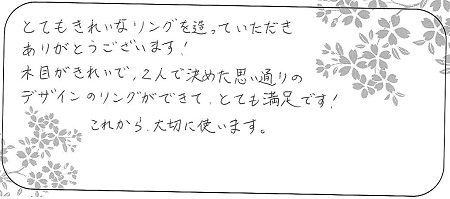 とてもきれいなリングを造っていただき
ありがとうございます!
木目がきれいで、2人で決めた思い通りの
デザインのリングができて、とても満足です!
これから、大切に使います。